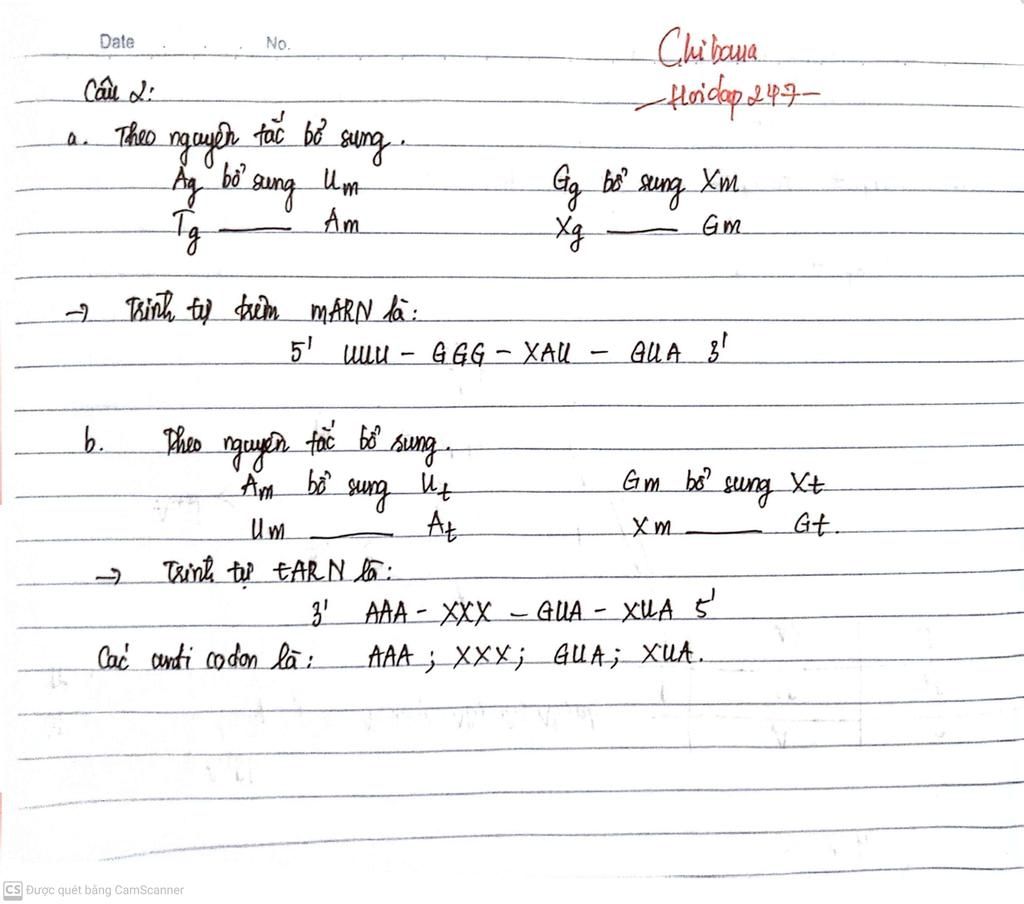 Date . . . No.
Chibana
— Hoidap 247 —
Câu 2:
a. Theo nguyên tắc bổ sung.
Ag bổ sung Um Gg bổ sung Xm
Tg —— Am Xg —— Gm
→ Trình tự trên mARN là:
5' UUU - GGG - XAU - GUA 3'
b. Theo nguyên tắc bổ sung.
Am bổ sung Ut Gm bổ sung Xt
Um —— At Xm —— Gt.
→ Trình tự tARN là:
3' AAA - XXX - GUA - XUA 5'
Các anti codon là: AAA ; XXX; GUA; XUA.
CS Được quét bằng CamScanner